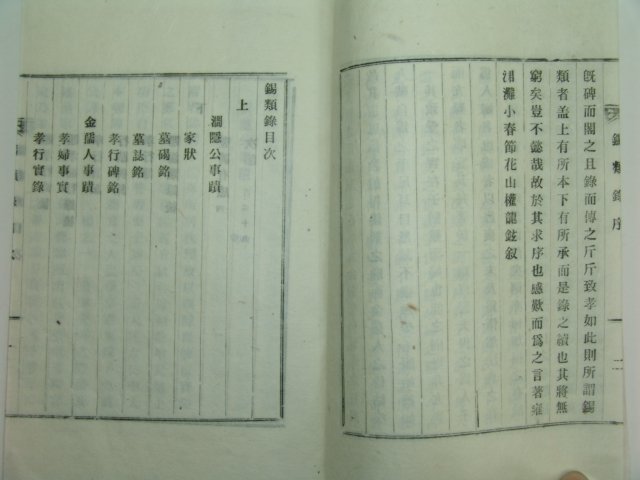 既碑而閣之且錄而傳之斤斤致孝如此則所謂錫
類者盖上有所本下有所承而是錄之續也其將無
窮矣豈不懿哉故於其求序也感歎而爲之言著雍
涒灘小春節花山權龍鉉叙
錫類錄序
二
錫類錄目次
上
澗隱公事蹟
家狀
墓碣銘
墓誌銘
孝行碑銘
金孺人事蹟
孝婦事實
孝行實錄